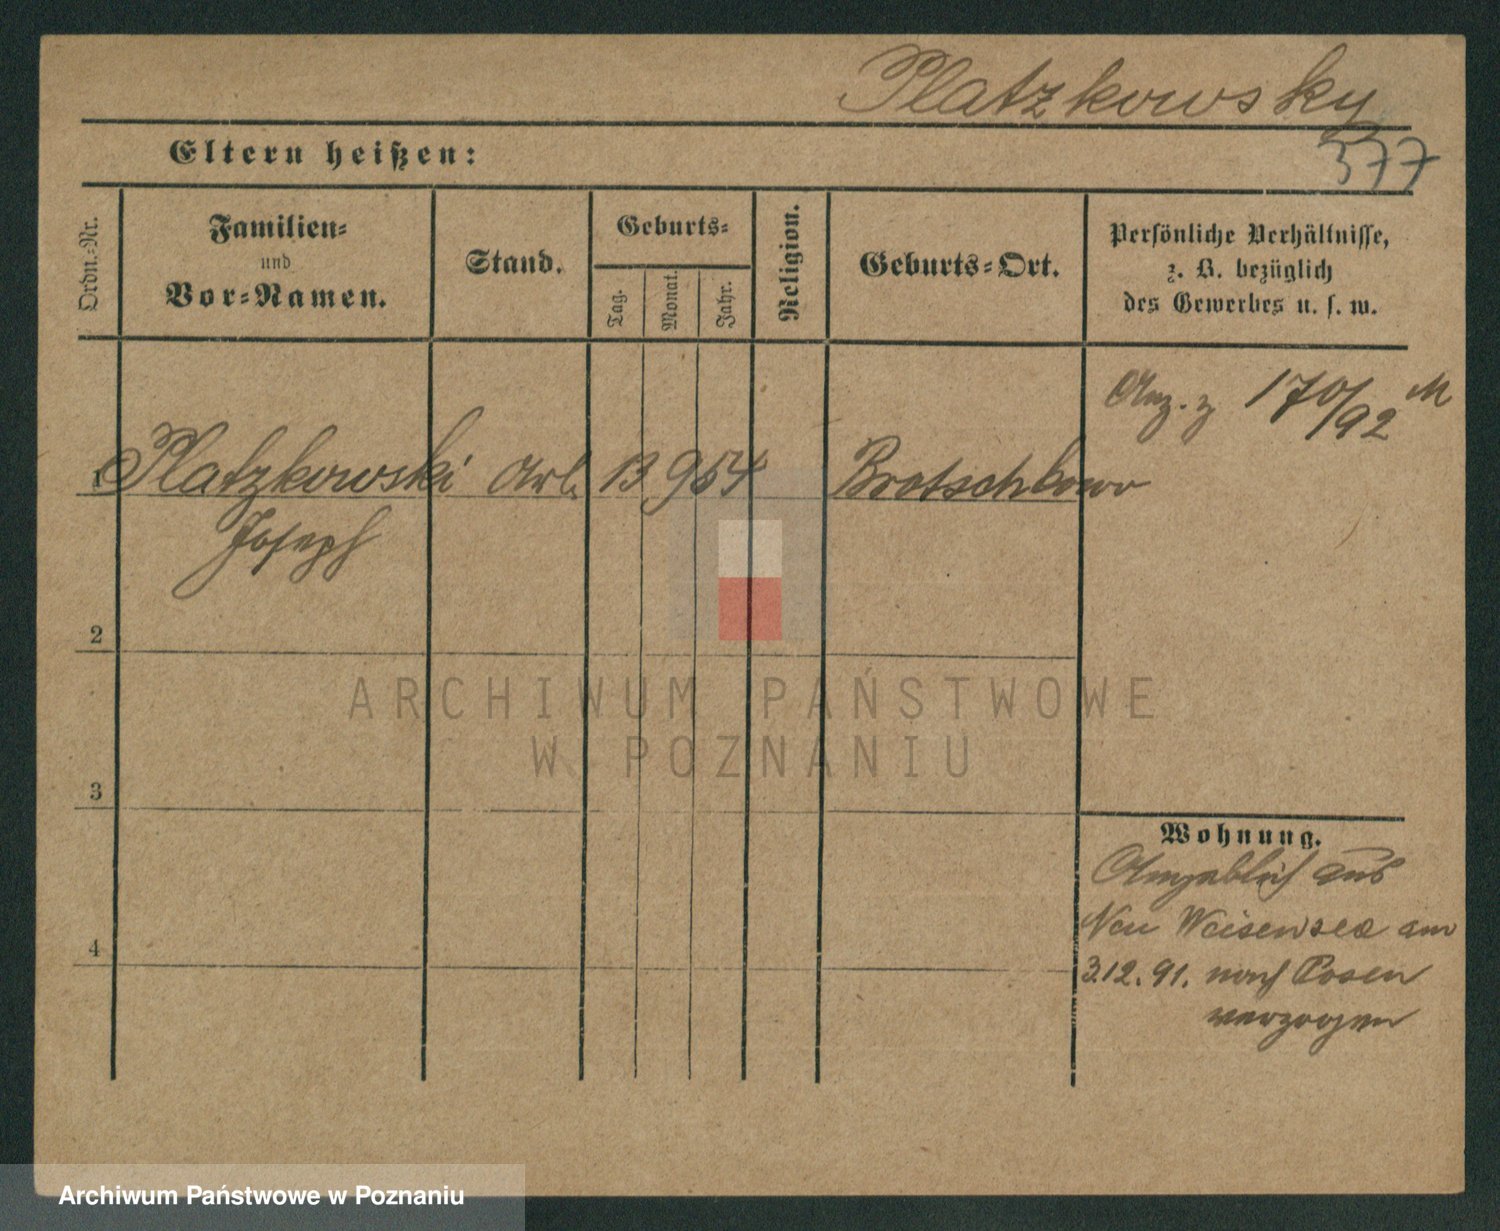 Platzkowsky
377
Eltern heißen:
Ordn.-Nr.
Familien-
und
Vor-Namen.
Stand.
Geburts-
Tag.
Monat.
Jahr.
Religion.
Geburts-Ort.
Persönliche Verhältnisse,
z. B. bezüglich
des Gewerbes u. s. w.
Anz. z 170/92 M
1 Platzkowski Arb. 13 9 54
Joseph
2
3
4
Wohnung.
Angeblich aus
Neu Weisensee am
3.12.91. nach Posen
verzogen
ARCHIWUM PAŃSTWOWE
W POZNANIU
Archiwum Państwowe w Poznaniu